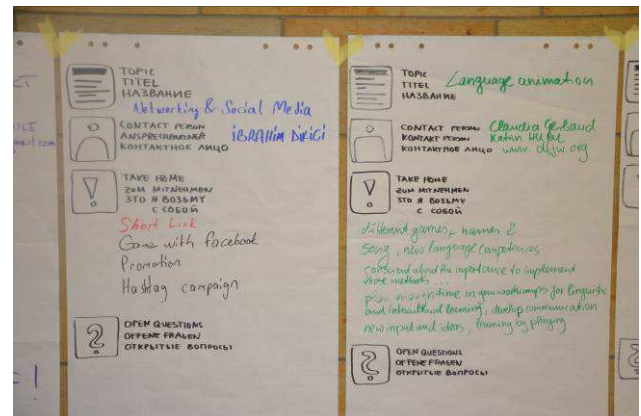 TOPIC
TITEL
НАЗВАНИЕ
Networking & Social Media
CONTACT PERSON
ANSPRECHPARTNER
КОНТАКТНОЕ ЛИЦО
İBRAHİM
TAKE HOME
ZUM MITNEHMEN
ЭТО Я ВОЗЬМУ
С СОБОЙ
Short Link
Game with facebook
Promotion
Hashtag campaign
OPEN QUESTIONS
OFFENE FRAGEN
ОТКРЫТЫЕ ВОПРОСЫ
TOPIC
TITEL
НАЗВАНИЕ
Language animation
CONTACT PERSON
KONTAKT PERSON
КОНТАКТНОЕ ЛИЦО
Claudia
Katrin
www.dfjw.org
TAKE HOME
ZUM MITNEHMEN
ЭТО Я ВОЗЬМУ
С СОБОЙ
different games, names
song, new language competences
conscient about the importance to implement
those methods ...
plan enough time in your workcamps for linguistic
and intercultural learning, develop communication
new input and ideas, learning by playing
OPEN QUESTIONS
OFFENE FRAGEN
ОТКРЫТЫЕ ВОПРОСЫ